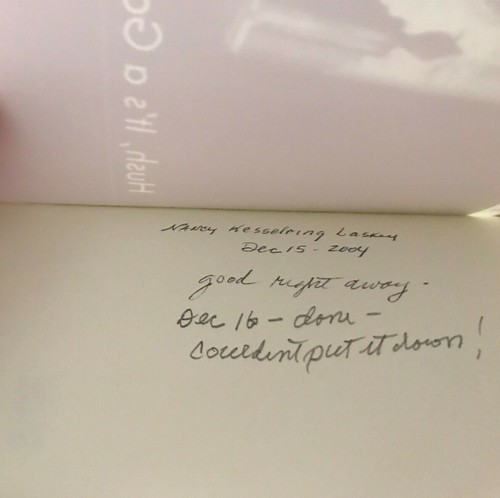 Hush, It's a Ga
Nancy Kesselring Laskey
Dec 15 - 2004
good right away -
Dec 16 - done -
couldn't put it down!